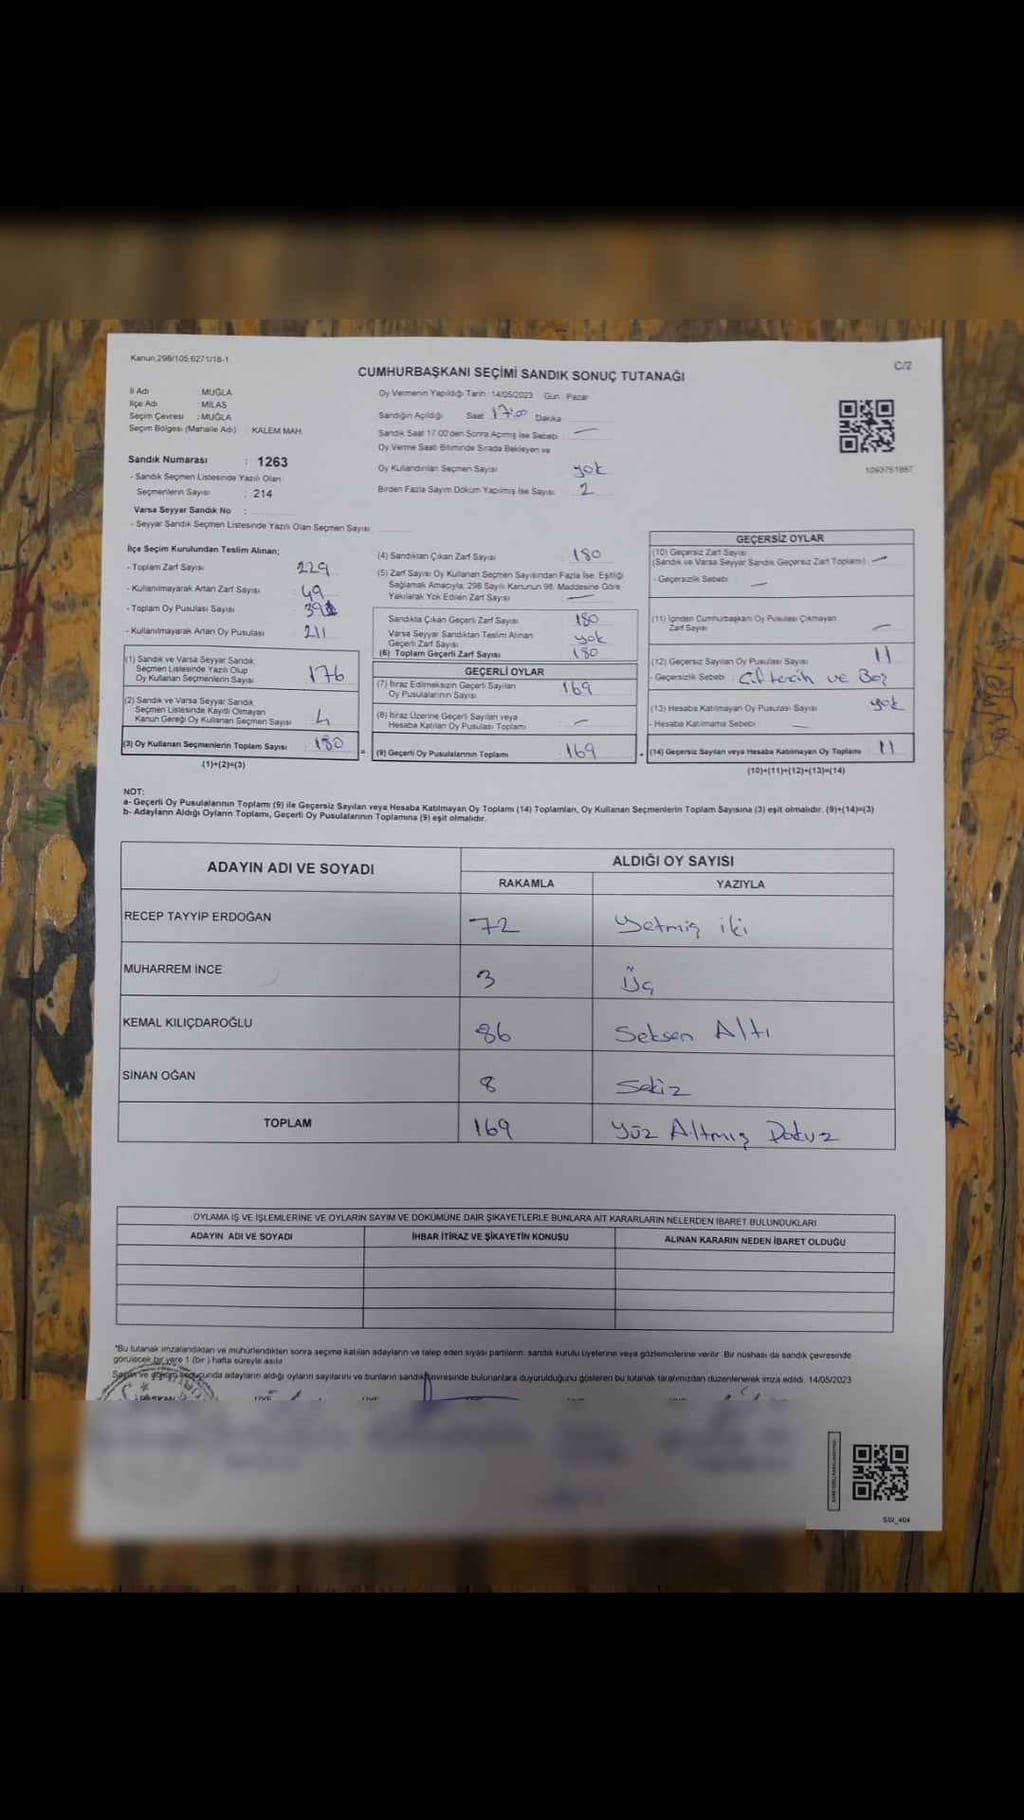 Kanun;298/105,6271/18-1
C/2
CUMHURBAŞKANI SEÇİMİ SANDIK SONUÇ TUTANAĞI
İl Adı : MUĞLA
İlçe Adı : MİLAS
Seçim Çevresi : MUĞLA
Seçim Bölgesi (Mahalle Adı) KALEM MAH.
Sandık Numarası : 1263
- Sandık Seçmen Listesinde Yazılı Olan
Seçmenlerin Sayısı : 214
Varsa Seyyar Sandık No :
- Seyyar Sandık Seçmen Listesinde Yazılı Olan Seçmen Sayısı
Oy Vermenin Yapıldığı Tarih : 14/05/2023 Gün : Pazar
Sandığın Açıldığı Saat 17:00 Dakika
Sandık Saat 17:00'den Sonra Açımış İse Sebebi : —
Oy Verme Saati Bitiminde Sırada Bekleyen ve
Oy Kullandırılan Seçmen Sayısı yok
Birden Fazla Sayım Döküm Yapılmış İse Sayısı 2
1093751887
İlçe Seçim Kurulundan Teslim Alınan;
- Toplam Zarf Sayısı 229
- Kullanılmayarak Artan Zarf Sayısı 49
- Toplam Oy Pusulası Sayısı
- Kullanılmayarak Artan Oy Pusulası 211
(1) Sandık ve Varsa Seyyar Sandık
Seçmen Listesinde Yazılı Olup
Oy Kullanan Seçmenlerin Sayısı 176
(2) Sandık ve Varsa Seyyar Sandık
Seçmen Listesinde Kaydı Olmayan
Kanun Gereği Oy Kullanan Seçmen Sayısı 4
(3) Oy Kullanan Seçmenlerin Toplam Sayısı 180
(1)+(2)=(3)
(4) Sandıktan Çıkan Zarf Sayısı 180
(5) Zarf Sayısı Oy Kullanan Seçmen Sayısından Fazla İse, Eşitliği
Sağlamak Amacıyla, 298 Sayılı Kanunun 98. Maddesine Göre
Yakılarak Yok Edilen Zarf Sayısı —
Sandıkta Çıkan Geçerli Zarf Sayısı 180
Varsa Seyyar Sandıktan Teslim Alınan
Geçerli Zarf Sayısı yok
(6) Toplam Geçerli Zarf Sayısı 180
GEÇERLİ OYLAR
(7) İtiraz Edilmeksizin Geçerli Sayılan
Oy Pusulalarının Sayısı 169
(8) İtiraz Üzerine Geçerli Sayılan veya
Hesaba Katılan Oy Pusulası Toplamı —
= (9) Geçerli Oy Pusulalarının Toplamı 169
GEÇERSİZ OYLAR
(10) Geçersiz Zarf Sayısı
(Sandık ve Varsa Seyyar Sandık Geçersiz Zarf Toplamı) —
- Geçersizlik Sebebi : —
(11) İçinden Cumhurbaşkanı Oy Pusulası Çıkmayan
Zarf Sayısı —
(12) Geçersiz Sayılan Oy Pusulası Sayısı 11
- Geçersizlik Sebebi : ve Boş
(13) Hesaba Katılmayan Oy Pusulası Sayısı yok
- Hesaba Katılmama Sebebi : —
+ (14) Geçersiz Sayılan veya Hesaba Katılmayan Oy Toplamı 11
(10)+(11)+(12)+(13)=(14)
NOT:
a- Geçerli Oy Pusulalarının Toplamı (9) ile Geçersiz Sayılan veya Hesaba Katılmayan Oy Toplamı (14) Toplamları, Oy Kullanan Seçmenlerin Toplam Sayısına (3) eşit olmalıdır. (9)+(14)=(3)
b- Adayların Aldığı Oyların Toplamı, Geçerli Oy Pusulalarının Toplamına (9) eşit olmalıdır.
ADAYIN ADI VE SOYADI
ALDIĞI OY SAYISI
RAKAMLA YAZIYLA
RECEP TAYYİP ERDOĞAN 72 Yetmiş iki
MUHARREM İNCE 3 Üç
KEMAL KILIÇDAROĞLU 86 Seksen Altı
SİNAN OĞAN 8 Sekiz
TOPLAM 169 Yüz Altmış Dokuz
OYLAMA İŞ VE İŞLEMLERİNE VE OYLARIN SAYIM VE DÖKÜMÜNE DAİR ŞİKAYETLERLE BUNLARA AİT KARARLARIN NELERDEN İBARET BULUNDUKLARI
ADAYIN ADI VE SOYADI İHBAR İTİRAZ VE ŞİKAYETİN KONUSU ALINAN KARARIN NEDEN İBARET OLDUĞU
*Bu tutanak imzalandıktan ve mühürlendikten sonra seçime katılan adayların ve talep eden siyasi partilerin sandık kurulu üyelerine veya gözlemcilerine verilir. Bir nüshası da sandık çevresinde
görülecek bir yere 1 (bir) hafta süreyle asılır.
Sayım ve döküm sonucunda adayların aldığı oyların sayılarını ve bunların sandık çevresinde bulunanlara duyurulduğunu gösteren bu tutanak tarafımızdan düzenlenerek imza edildi. 14/05/2023